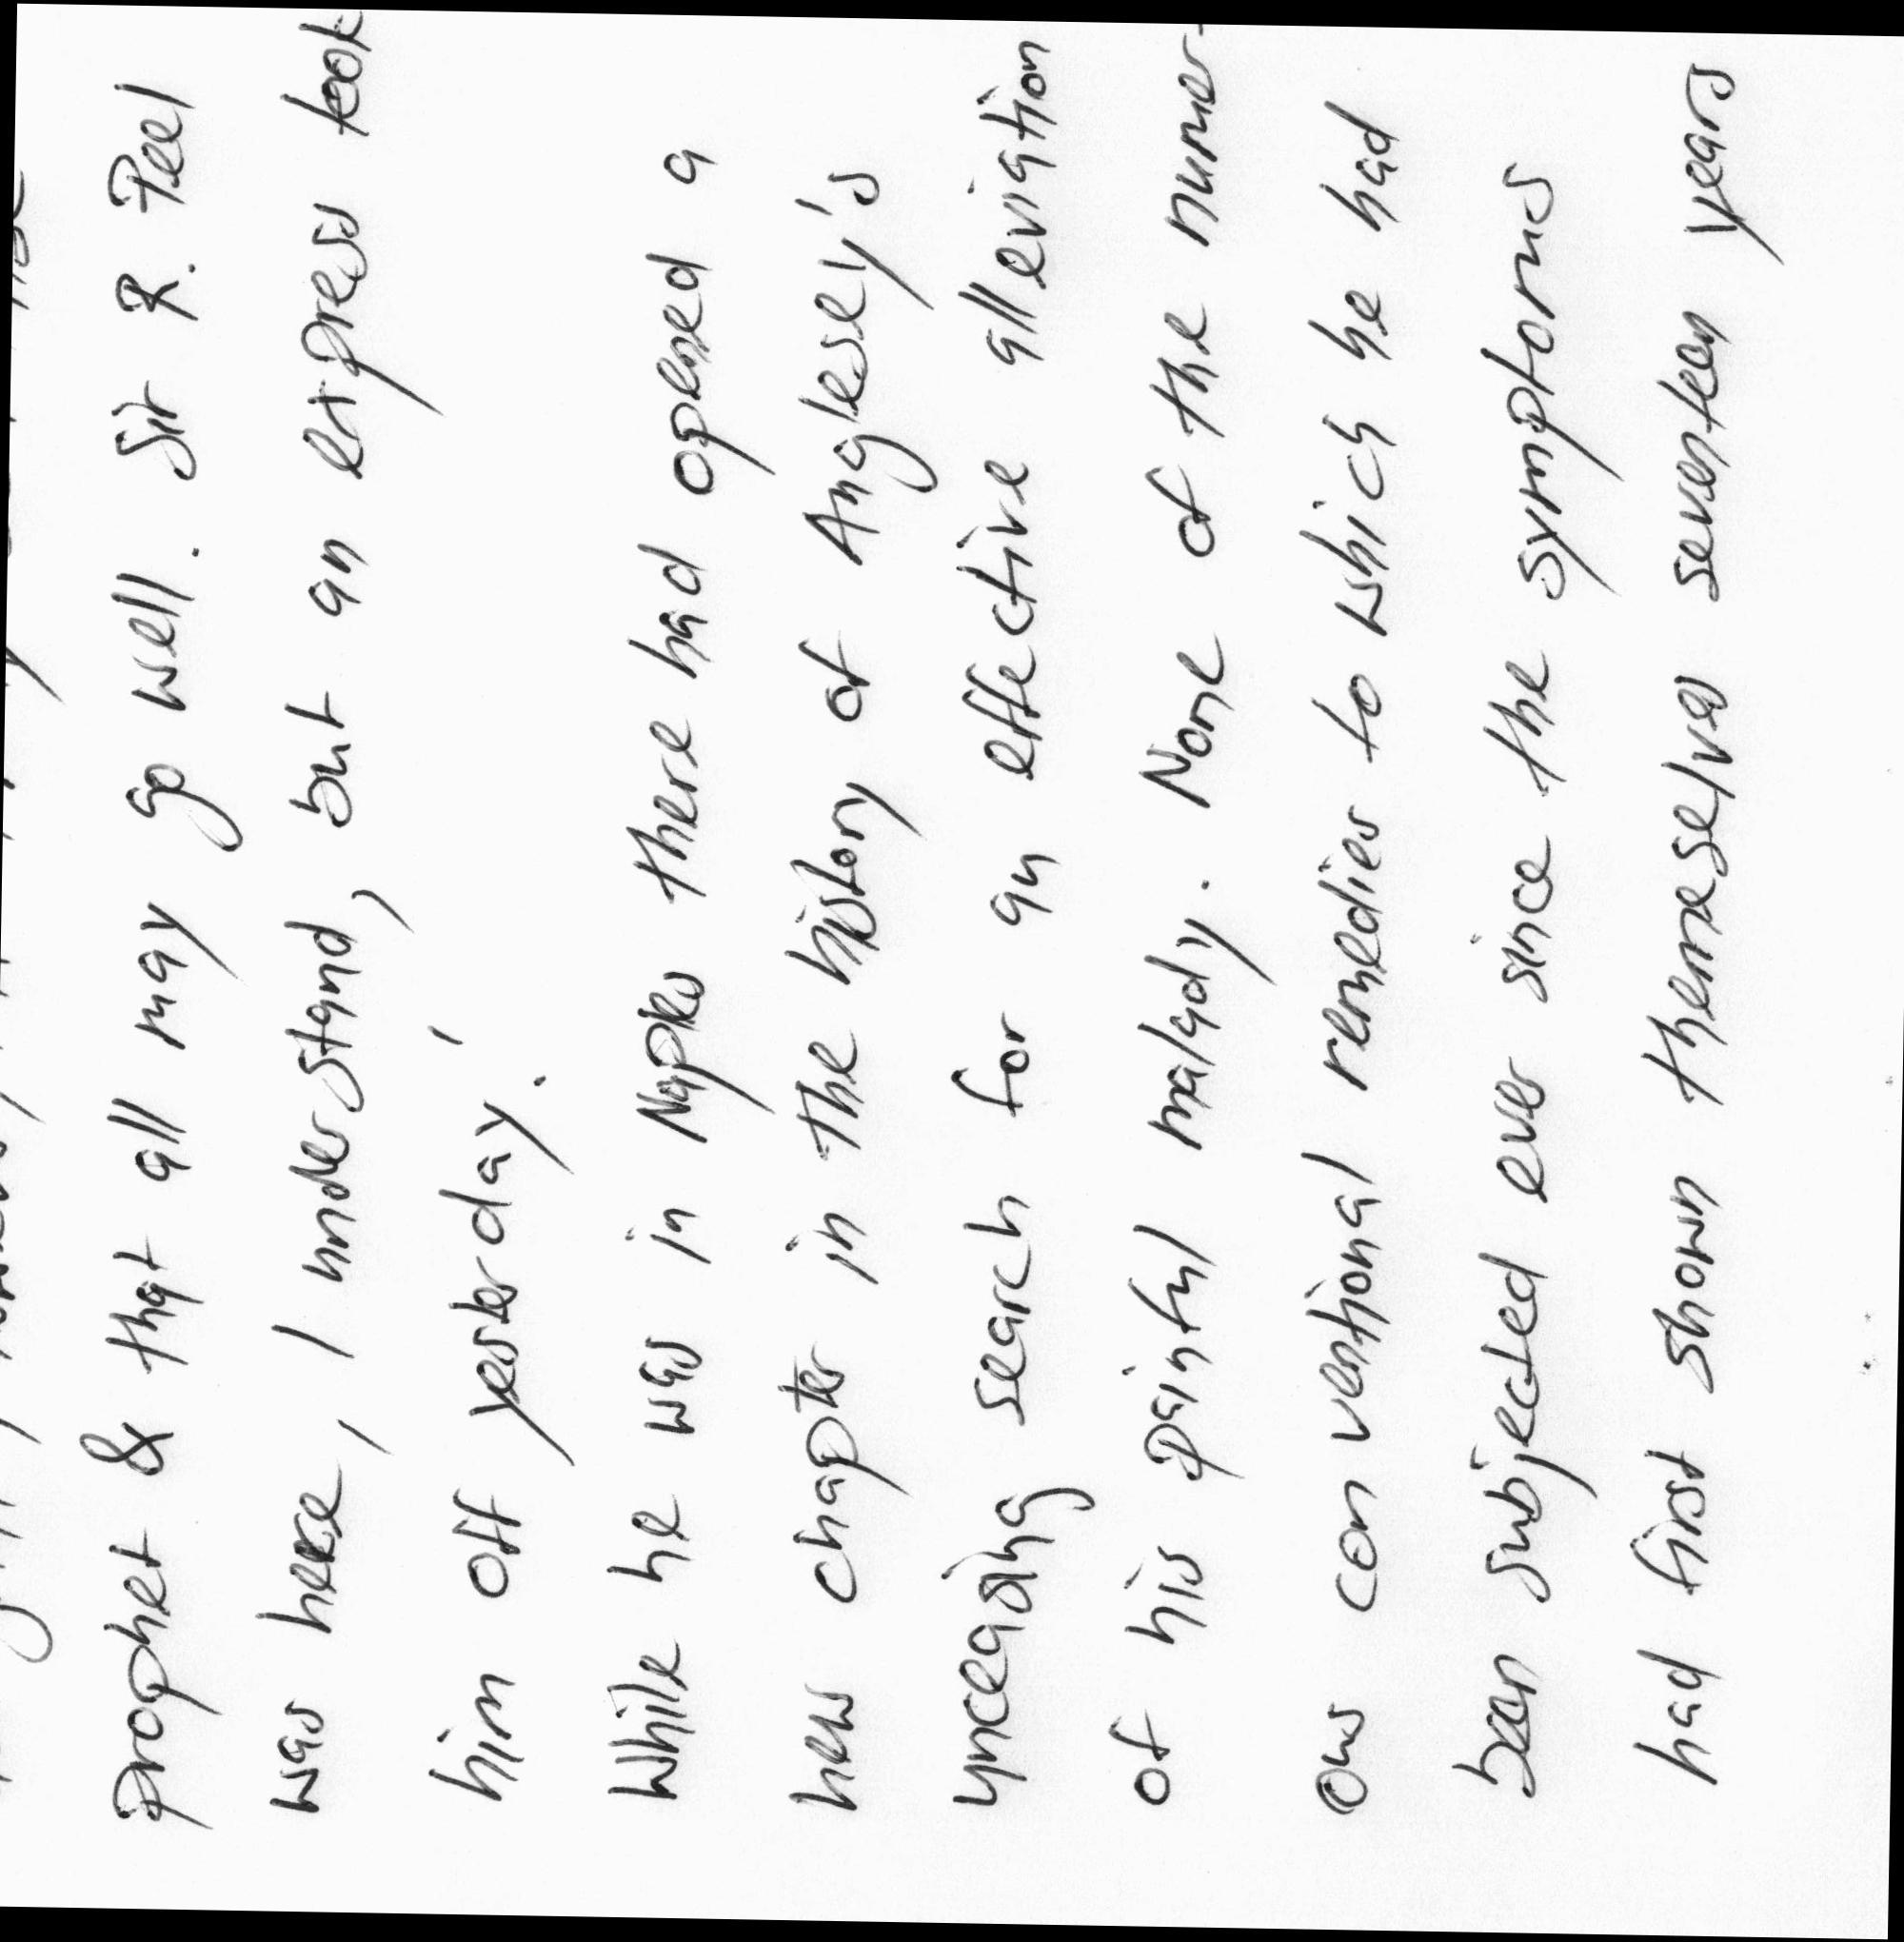 prophet & that all may go well. Sir R. Peel
was here, I understand, but an express took
him off yesterday.'
While he was in Naples there had opened a
new chapter in the history of Anglesey's
unceasing search for an effective alleviation
of his painful malady. None of the numer-
ous conventional remedies to which he had
been subjected ever since the symptoms
had first shown themeselves seventeen years